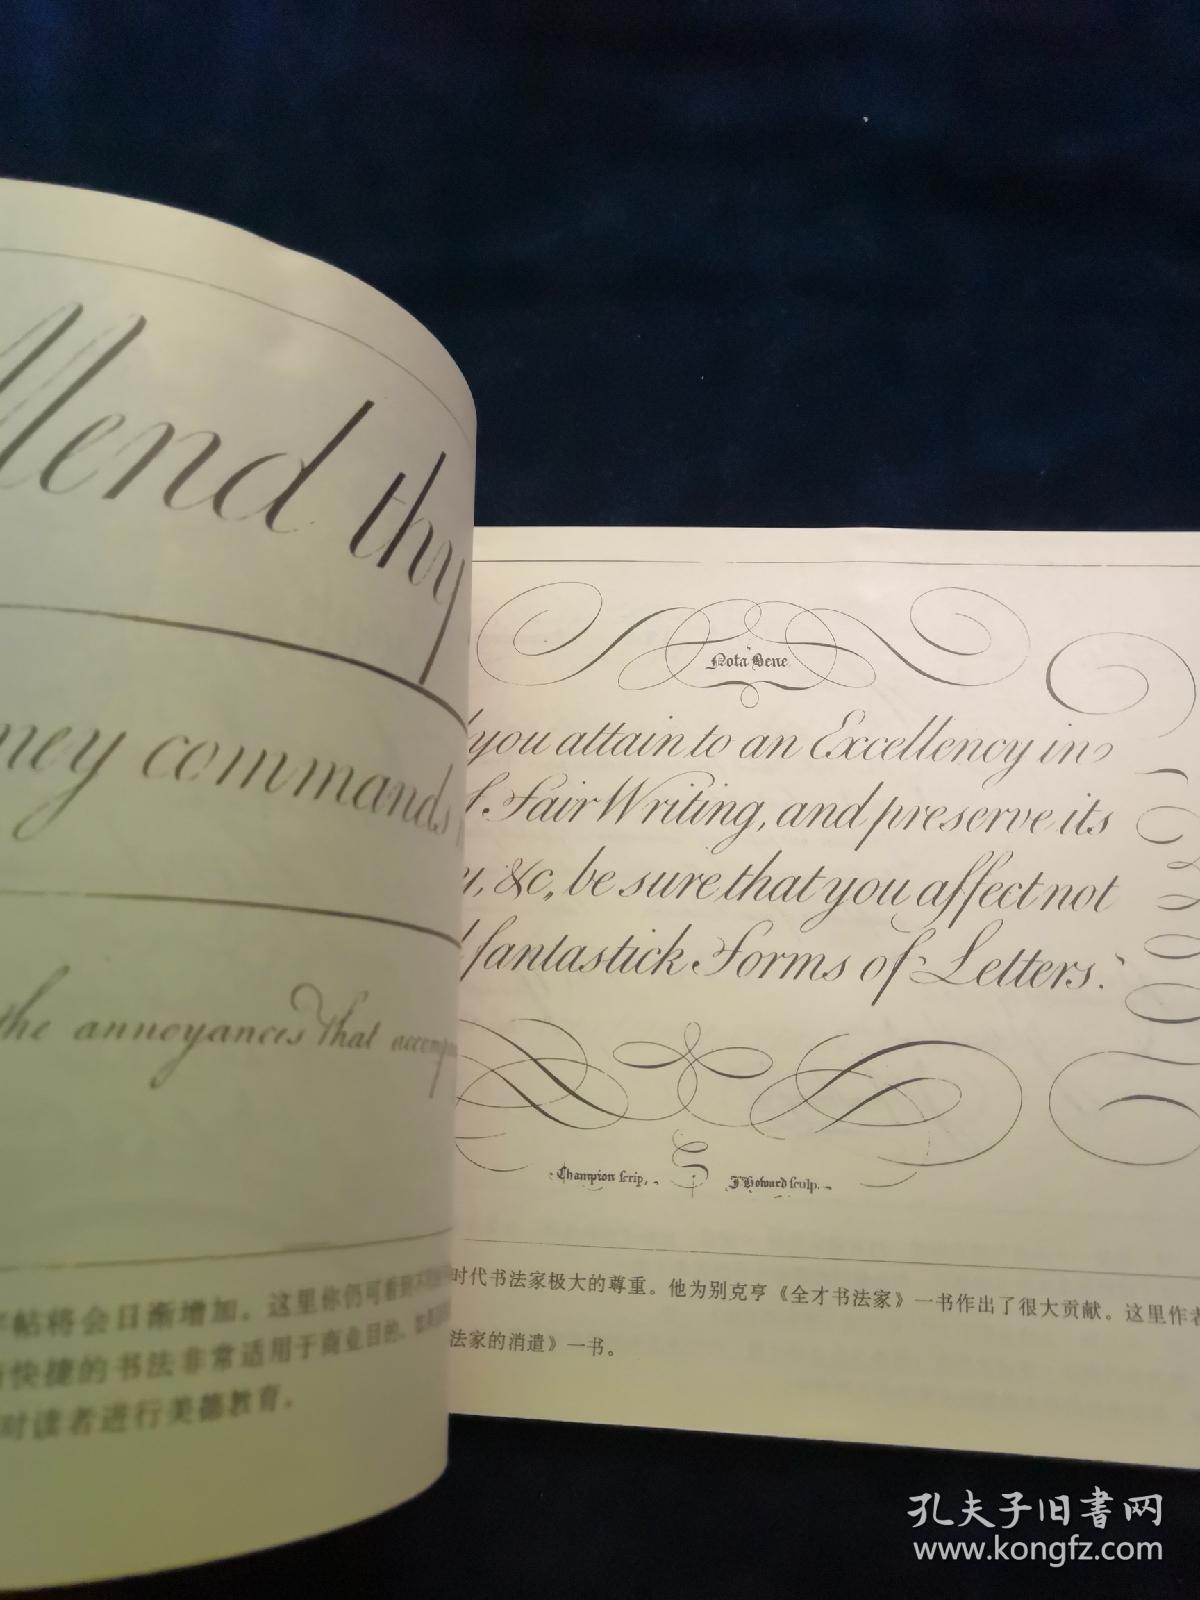 Mend thy
commands
the annoyances that
字帖将会日渐增加。这里你仍可看到
快捷的书法非常适用于商业目的。如果
时读者进行美德教育。
Nota Bene
you attain to an Excellency in
Fair Writing, and preserve its
&c, be sure that you affect not
fantastick Forms of Letters.
Champion scrip. J Howard sculp.
时代书法家极大的尊重。他为别克亨《全才书法家》一书作出了很大贡献。这里作者
法家的消遣》一书。
孔夫子旧书网
www.kongfz.com